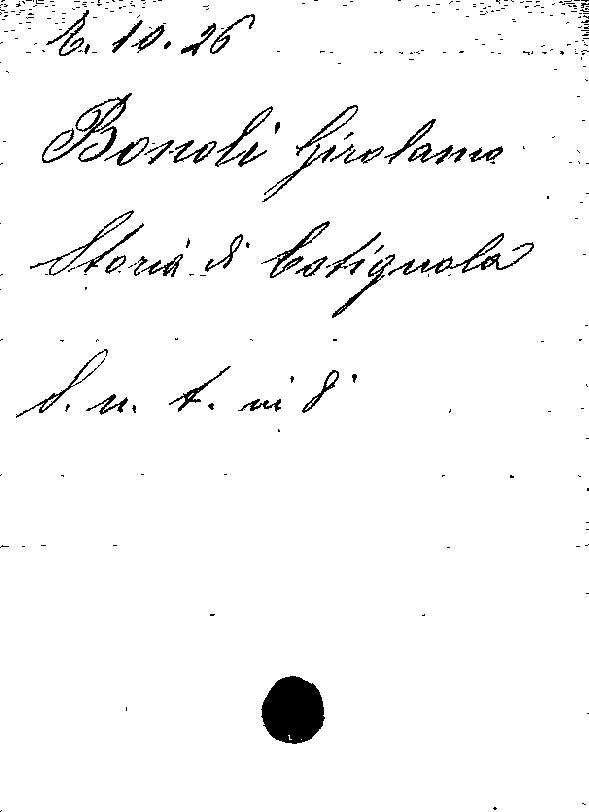 E. 10. 26
Bonoli Girolamo
Storia di Cotignola
S. n. t. in 8°